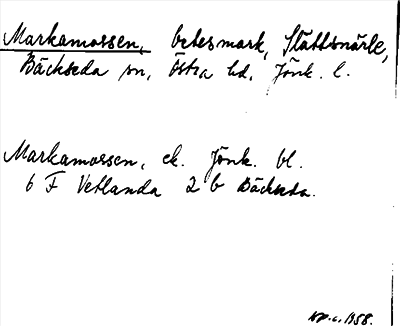 Markamossen, betesmark, Slättsnärle,
Bäckseda sn, Östra hd, Jönk. l.
Markamossen, ek. Jönk. bl.
6 F Vetlanda 2 b Bäckseda.
1958.